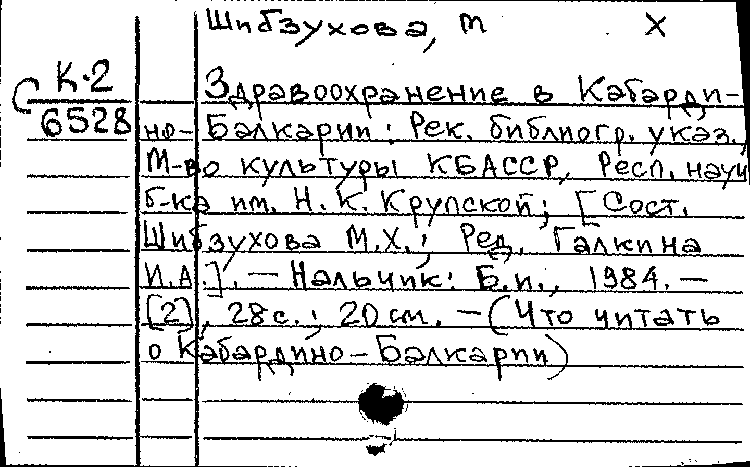 Шибзухова, М Х
С К-2
6528
Здравоохранение в Кабарди-
но-Балкарии: Рек. библиогр. указ.,
М-во культуры КБАССР, Респ. науч
б-ка им. Н. К. Крупской; [Сост.
Шибзухова М.Х.; Ред. Галкина
И.А.]. — Нальчик: Б.и., 1984. —
[2], 28с.; 20 см. — (Что читать
о Кабардино-Балкарии)